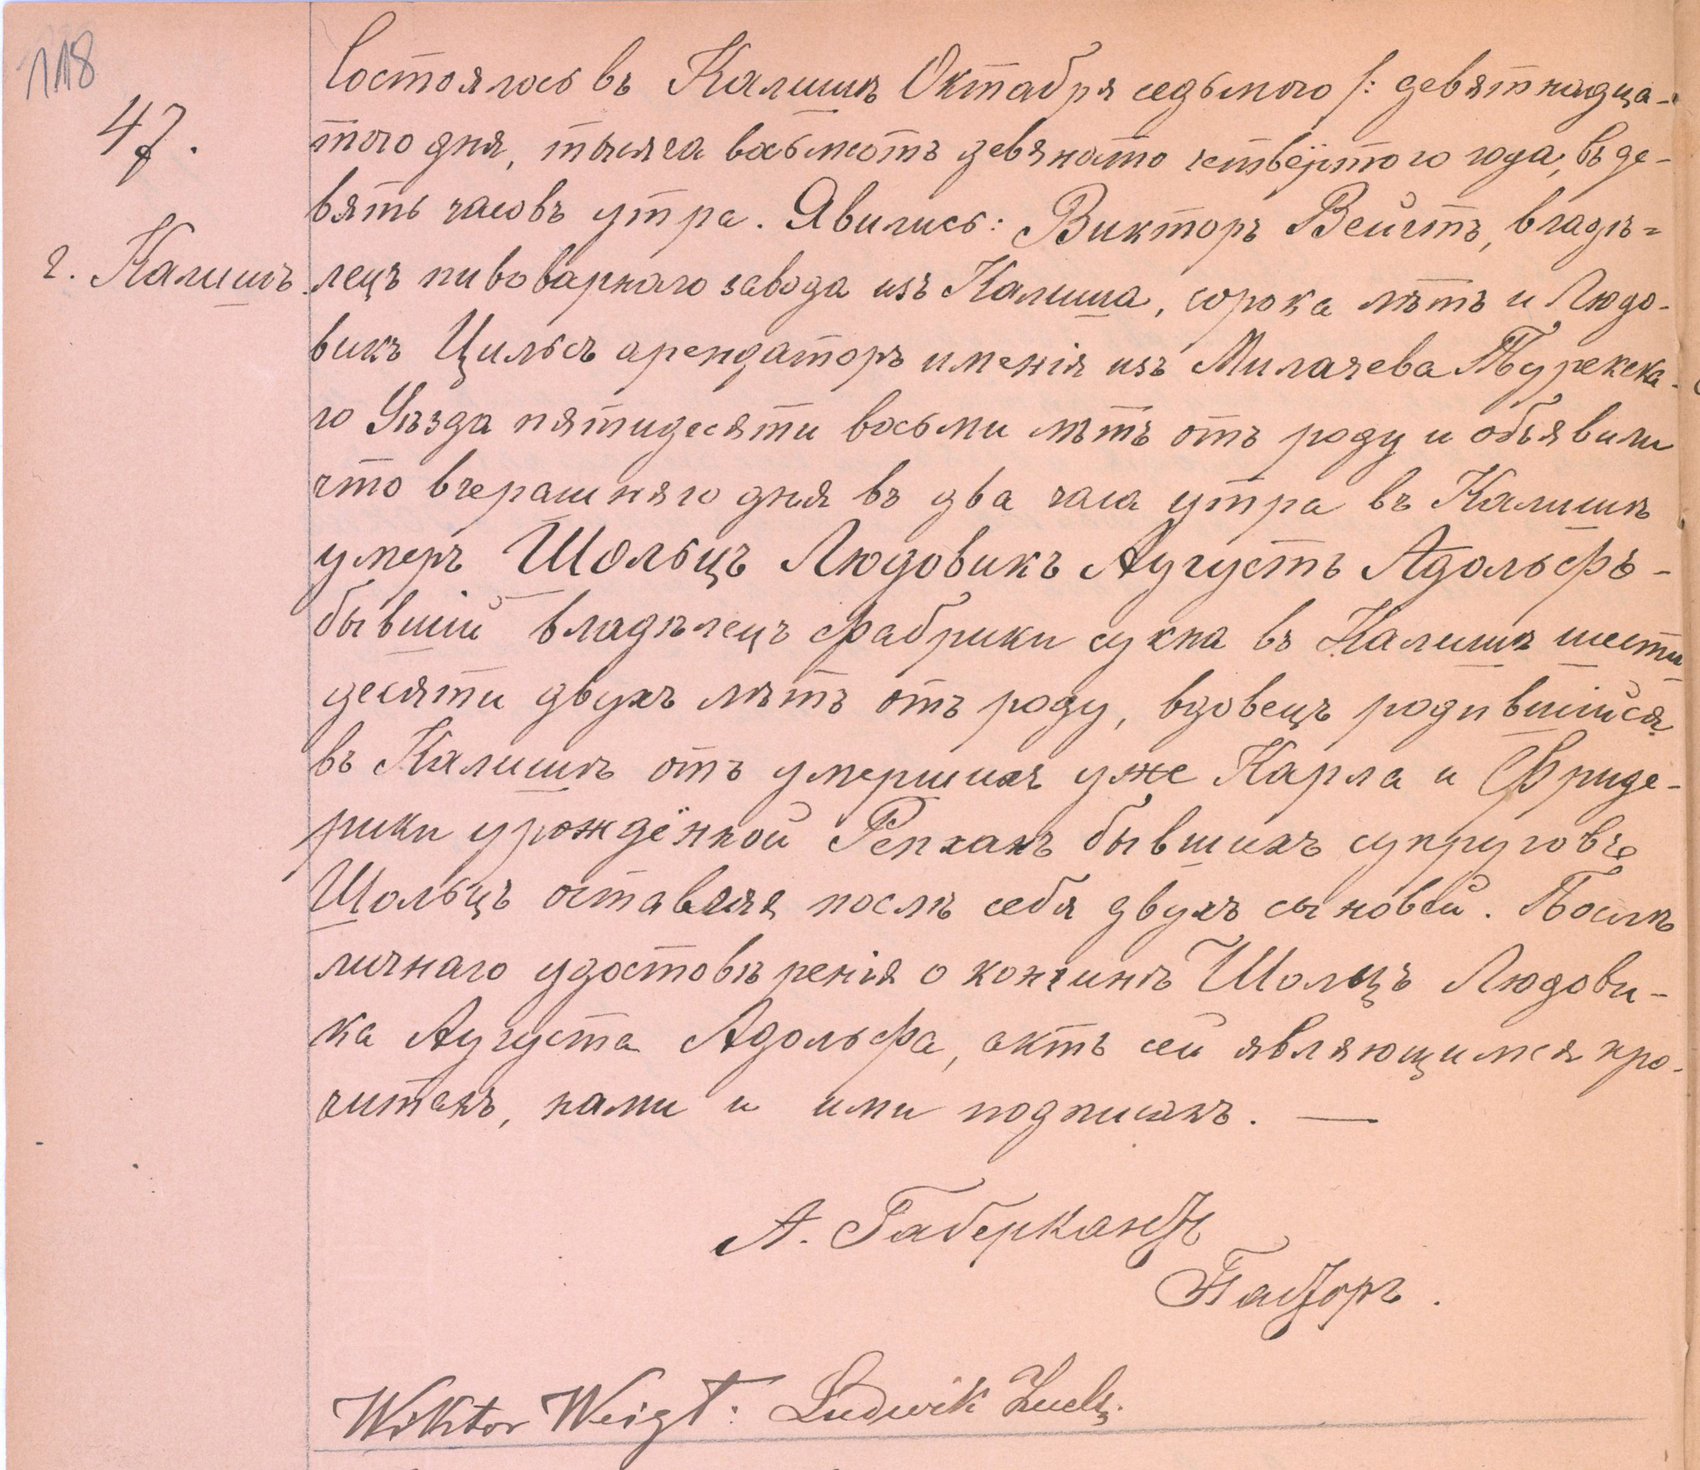 118
47.
г. Калишъ.
Состоялось въ Калишѣ Октября седьмого /: девятнадца-
того дня, тысяча восьмсотъ девяносто четвёртого года, въ де-
вять часовъ утра. Явились: Викторъ Вейгтъ, владѣ=
лецъ пивоварнаго завода изъ Калиша, сорока лѣтъ и Людо-
викъ Цильсъ арендаторъ имѣнія изъ Милачева Турекска-
го Уѣзда пятидесяти восьми лѣтъ отъ роду и объявили
что вчерашняго дня въ два часа утра въ Калишѣ
умеръ Шольцъ Людовикъ Аугустъ Адольфъ -
бывшій владѣлецъ фабрики сукна въ Калишѣ шести
десяти двухъ лѣтъ отъ роду, вдовецъ родившійся
въ Калишѣ отъ умершихъ уже Карла и Фриде-
рики урождённой Репханъ бывшихъ супруговъ
Шольцъ оставляя послѣ себя двухъ сыновей. Послѣ
личнаго удостовѣренія о кончинѣ Шольцъ Людови-
ка Аугуста Адольфа, актъ сей являющимся про-
читанъ, нами и ими подписанъ. —
А. Габеркантъ
Пасторъ.
Wiktor Weigt. Ludwik